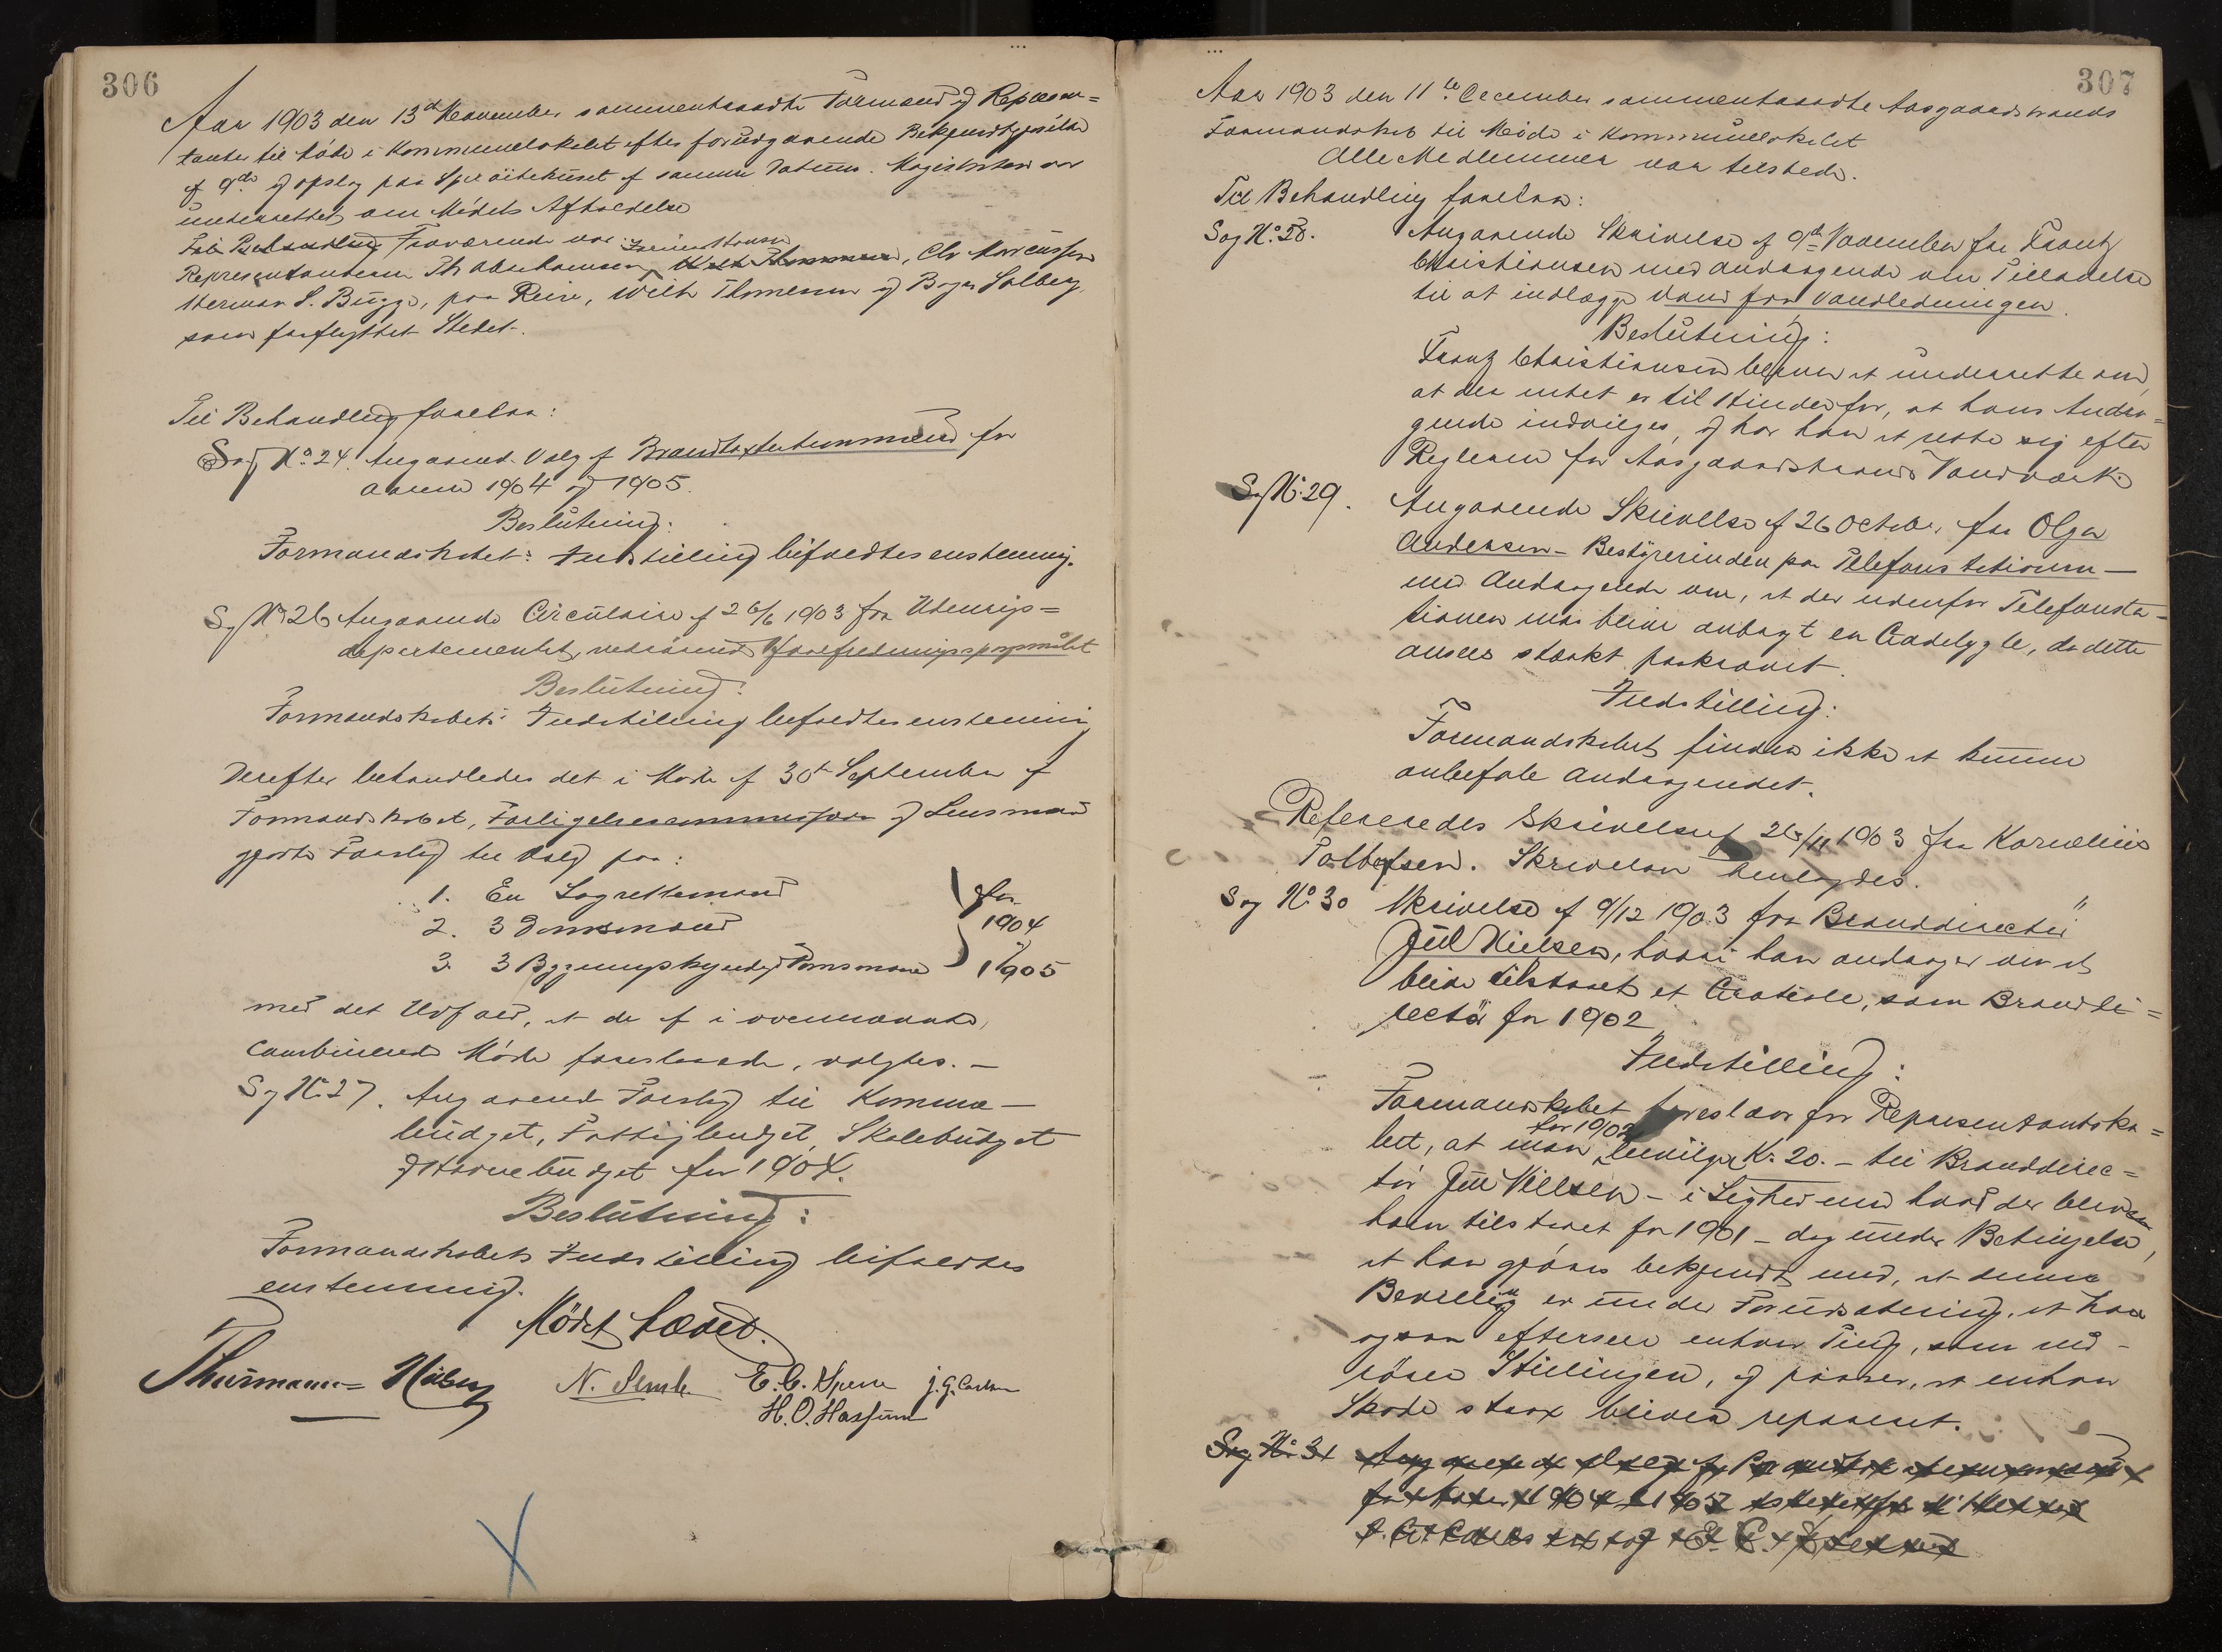 306
Aar 1903 den 13de November sammentraadte Formænd og Repræsen=
tanter til Møde i Kommunelokalet efter forudgaaende Bekjendtgjørelse
af 9de og opslag paa Sprøitehuset af samme Datum. Magistraten var
underrettet om Mødets Afholdelse
Fraværende var
Repræsentanterne Th Abrahamsen, Chr Marcussen
Herman S. Bugge, paa Reise, Wilh Thomesen og Solberg
som forflyttet Stedet.
Til Behandling forelaa:
Sag No 24. Angaaende Valg af Brandtaxtationsmænd for
Aarene 1904 og 1905.
Beslutning:
Formandskabets Indstilling bifaldtes enstemmig.
Sag No 26 Angaaende Circulaire af 26/6 1903 fra Udenrigs=
departementet, vedrørende
Beslutning:
Formandskabets Indstilling bifaldtes enstemmig
Derefter behandledes det i Møde af 30te September af
Formandskabet, Forligelsescommission og Lensmand
gjorte Forslag til Valg paa:
1. En Lagrettemand
2. 3 Domsmænd
3. 3 Bygningskyndige Domsmænd
for
1904
og
1905
med det Udfald, at de af i ovennævnte,
combinerede Møde foreslaaede, valgtes. —
Sag No 27. Angaaende Forslag til Kommune—
budget, Fattigbudget, Skolebudget
og Havnebudget for 1904.
Beslutning:
Formandskabets Indstilling bifaldtes
enstemmig.
Mødet hævet.
Thurmann= Nielsen N. E. C. J. G. Carlsen
H. O. Hassum
307
Aar 1903 den 11te December sammentraadte Aasgaardstrands
Formandskab til Møde i Kommunelokalet
Alle Medlemmer var tilstede.
Til Behandling forelaa:
Sag No. 28. Angaaende Skrivelse af 9de November fra Frantz
Christiansen med andragende om Tilladelse
til at indlægge Vand fra Vandledningen.
Beslutning:
Frantz Christiansen bliver at underrette om,
at der intet er til Hinder for, at hans Andra=
gende indvilges, og har han at rette sig efter
Reglerne for Aasgaardstrands Vandværk
Sag No. 29. Angaaende Skrivelse af 26 October fra Olga
Andersen — Bestyrerinden paa Telefonstationen —
med Andragende om, at der udenfor Telefonsta=
tionen maa blive anbragt en Gadelygte, da dette
ansees stærkt paakrævet.
Indstilling:
Formandskabet finder ikke at kunne
anbefale Andragendet.
Refereredes Skrivelse af 26/11 1903 fra Kornelius
Tollefsen. Skrivelsen henlagdes.
Sag No 30 Skrivelse af 9/12 1903 fra Branddirectør
Jul Nielsen, hvori han andrager om at
blive tilstaaet et Gratiale, som Branddi=
rectør for 1902.
Indstilling:
Formandskabet foreslaar for Repræsentantska=
bet, at man for 1902 bevilger Kr. 20.— til Branddirec=
tør Jul Nielsen — i Lighed med hvad der blev
ham tilstaaet for 1901 — dog under Betingelse,
at han gjøres bekjendt med, at denne
Bevilling er under Forudsætning, at han
ogsaa efterseer enhver Ting, som ved=
rører Stillingen, og paaser, at enhver
Skade strax bliver repareret.
Sag No 31